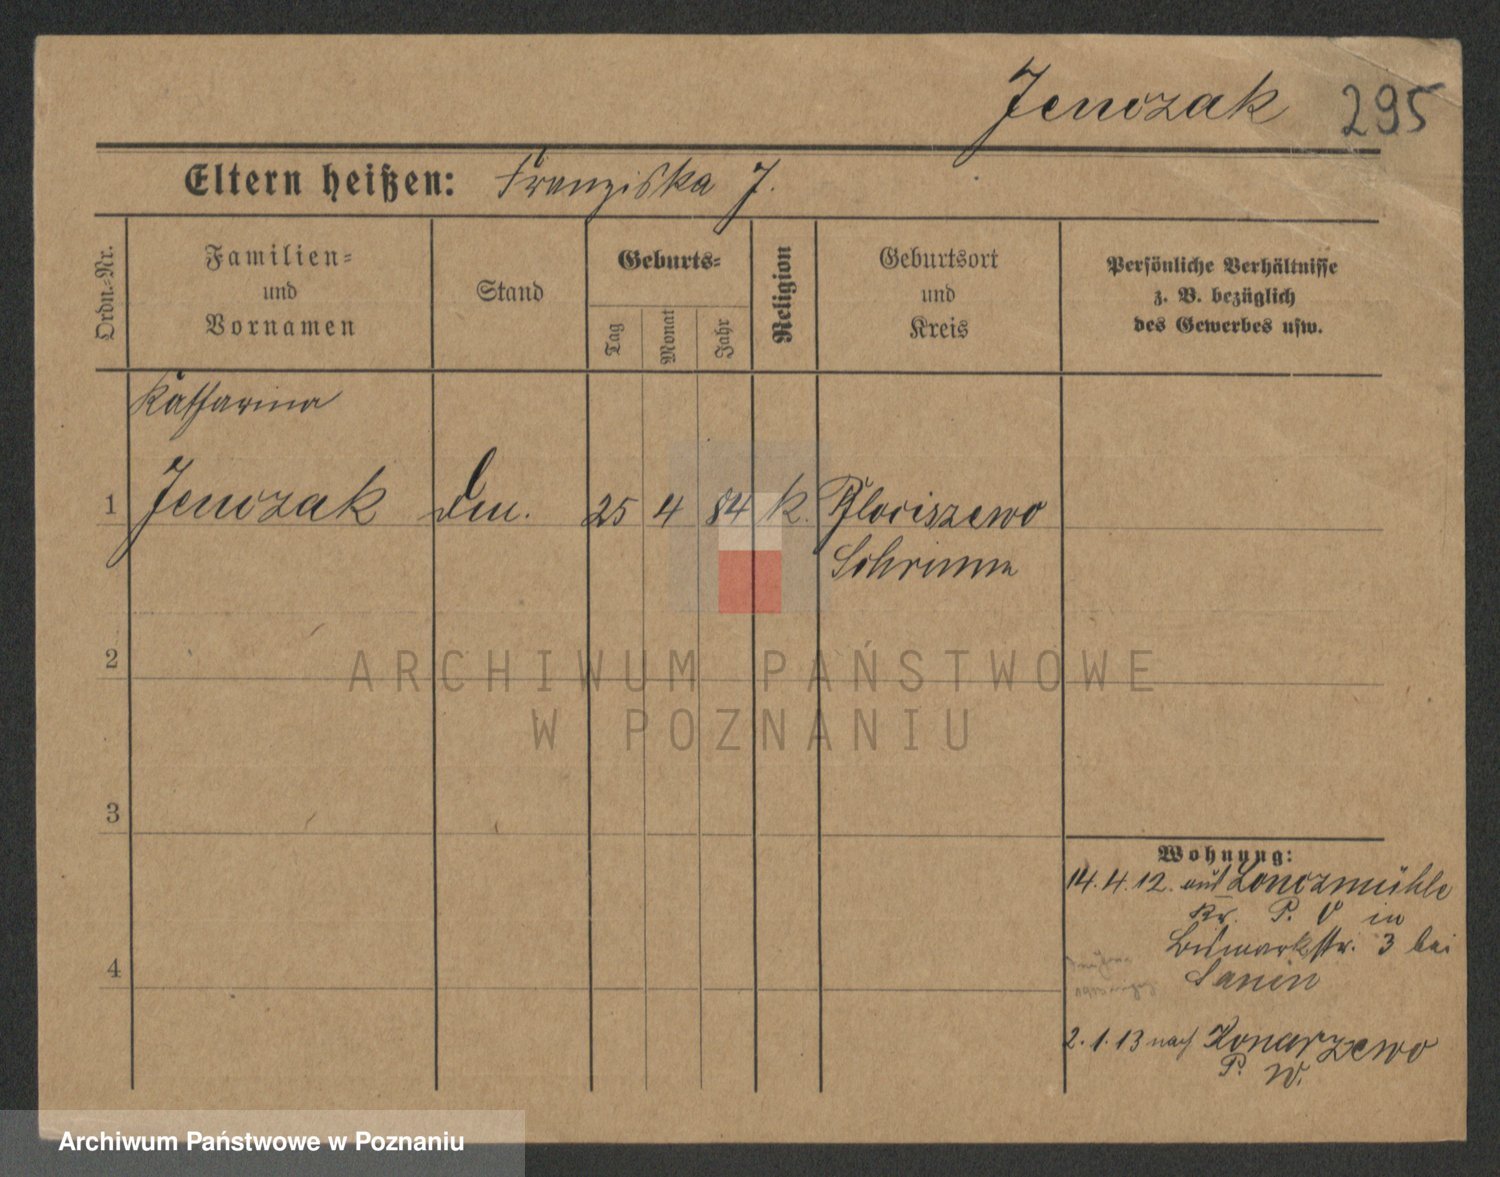 Jenczak 295
Eltern heißen: Franziska J.
Ordn.=Nr.
Familien=
und
Vornamen
Stand
Geburts=
Tag
Monat
Jahr
Religion
Geburtsort
und
Kreis
Persönliche Verhältnisse
z. B. bezüglich
des Gewerbes usw.
Katharina
1 Jenczak 25 4 84 k.
Schrimm
2
3
4
Wohnung:
14. 4. 12. aus Lonczmühle
Kr. P. O in
Bismarkstr. 3 bei
Sanin
2. 1. 13 nach Konarzewo
P. W.
ARCHIWUM PAŃSTWOWE
W POZNANIU
Archiwum Państwowe w Poznaniu